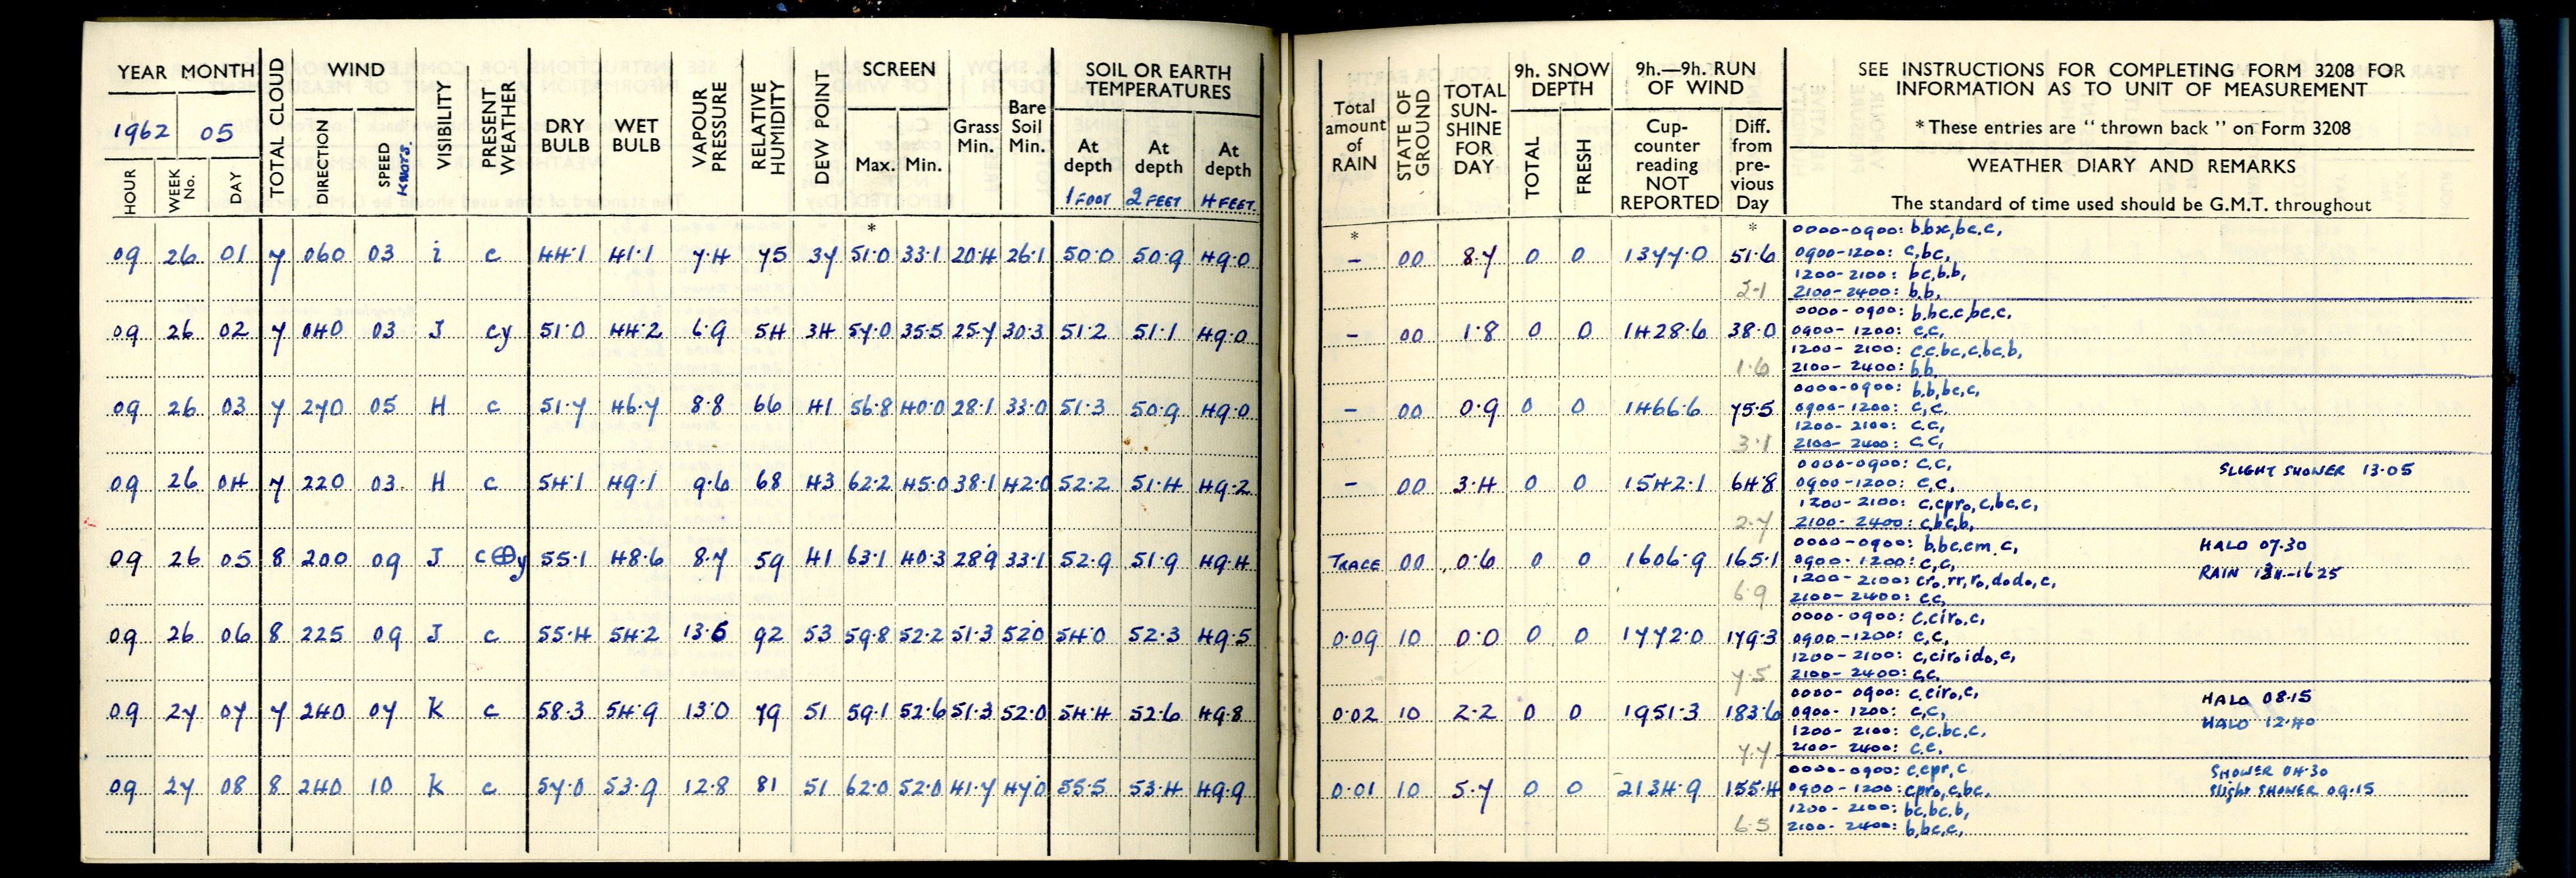 YEAR MONTH
1962 05
HOUR
WEEK No.
DAY
TOTAL CLOUD
WIND
DIRECTION
SPEED KNOTS.
VISIBILITY
PRESENT WEATHER
DRY BULB
WET BULB
VAPOUR PRESSURE
RELATIVE HUMIDITY
DEW POINT
SCREEN
Max. Min.
Grass Min.
Bare Soil Min.
SOIL OR EARTH
TEMPERATURES
At depth 1 FOOT
At depth 2 FEET
At depth 4 FEET.
Total amount of RAIN
STATE OF GROUND
TOTAL SUN-SHINE FOR DAY
9h. SNOW DEPTH
TOTAL
FRESH
9h.—9h. RUN OF WIND
Cup-counter reading NOT REPORTED
Diff. from pre-vious Day
SEE INSTRUCTIONS FOR COMPLETING FORM 3208 FOR
INFORMATION AS TO UNIT OF MEASUREMENT
* These entries are " thrown back " on Form 3208
WEATHER DIARY AND REMARKS
The standard of time used should be G.M.T. throughout
* * *
09 26 01 7 060 03 i c 44·1 41·1 7·4 75 37 51·0 33·1 20·4 26·1 50·0 50·9 49·0 – 00 8·7 0 0 1377·0 51·6
2·1
0000-0900: b.bx, bc.c,
0900-1200: c,bc,
1200-2100: bc,b.b,
2100-2400: b.b,
09 26 02 7 040 03 J cy 51·0 44·2 6·9 54 34 57·0 35·5 25·7 30·3 51·2 51·1 49·0 – 00 1·8 0 0 1428·6 38·0
1·6
0000-0900: b,bc.c,bc.c,
0900-1200: c,c,
1200-2100: c.c.bc,c.bc.b,
2100-2400: b.b.
09 26 03 7 270 05 H c 51·7 46·7 8·8 66 41 56·8 40·0 28·1 33·0 51·3 50·9 49·0 – 00 0·9 0 0 1466·6 75·5
3·1
0000-0900: b.b,bc,c,
0900-1200: c,c,
1200-2100: c.c,
2100-2400: c.c,
09 26 04 7 220 03 H c 54·1 49·1 9·6 68 43 62·2 45·0 38·1 42·0 52·2 51·4 49·2 – 00 3·4 0 0 1542·1 64·8
2·7
0000-0900: c.c, SLIGHT SHOWER 13·05
0900-1200: c,c,
1200-2100: c,cpro, c,bc,c,
2100-2400: c,bc,b,
09 26 05 8 200 09 J c⊕y 55·1 48·6 8·7 59 41 63·1 40·3 28·9 33·1 52·9 51·9 49·4 TRACE 00 0·6 0 0 1606·9 165·1
6·9
0000-0900: b,bc.cm.c, HALO 07·30
0900-1200: c,c,
1200-2100: cro.rr,ro,dodo,c,
2100-2400: c.c,
09 26 06 8 225 09 J c 55·4 54·2 13·6 92 53 59·8 52·2 51·3 52·0 54·0 52·3 49·5 0·09 10 0·0 0 0 1772·0 179·3
7·5
0000-0900: c,ciro,c,
0900-1200: c,c,
1200-2100: c,ciroido,c,
2100-2400: c.c.
09 27 07 7 240 07 K c 58·3 54·9 13·0 79 51 59·1 52·6 51·3 52·0 54·4 52·6 49·8 0·02 10 2·2 0 0 1951·3 183·6
7·7
0000-0900: c.ciro,c, HALO 08·15
0900-1200: c,c, HALO 12·40
1200-2100: c,c.bc,c,
2100-2400: c.c.
09 27 08 8 240 10 K c 57·0 53·9 12·8 81 51 62·0 52·0 41·7 47·0 55·5 53·4 49·9 0·01 10 5·7 0 0 2134·9 155·4
6·5
0000-0900: c,cpr,c SHOWER 04·30
0900-1200: cpro,c,bc, Slight SHOWER 09·15
1200-2100: bc,bc,b,
2100-2400: b,bc,c,